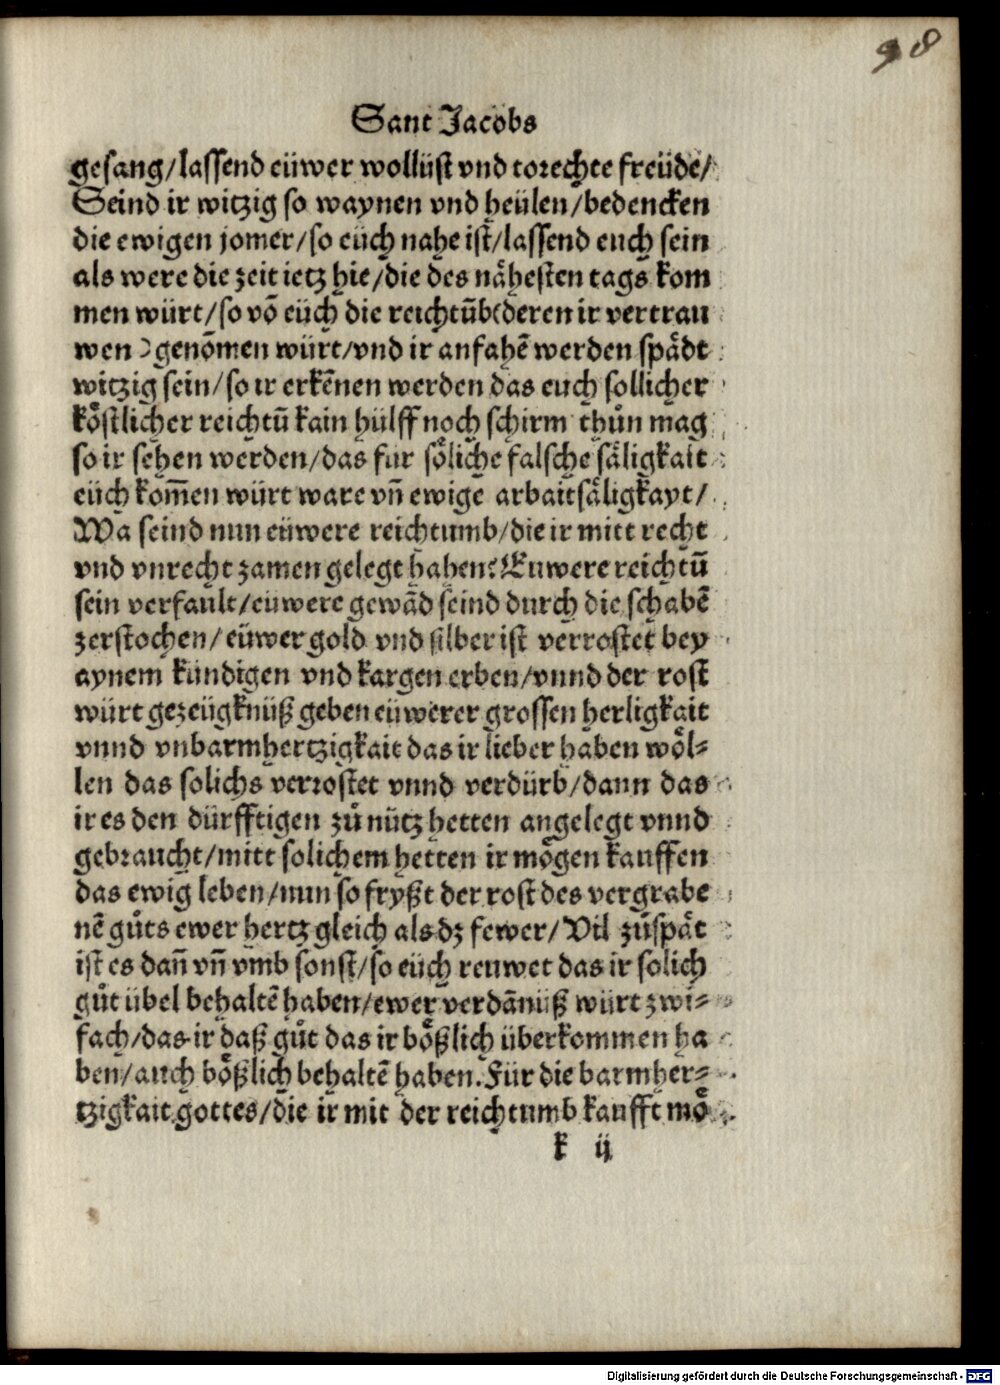 98
Sant Jacobs
gesang/lassend eüwer wollüst vnd torechte freüde/
Seind ir witzig so waynen vnd heülen/bedencken
die ewigen jomer/so eüch nahe ist/lassend euch sein
als were die zeit ietz hie/die des nåhesten tags kom
men würt/so võ eüch die reichtũb(deren ir vertrau
wen)genõmen würt/vnd ir anfahẽ werden spådt
witzig sein/so ir erkẽnen werden das euch sollicher
kőstlicher reichtũ kain hülff noch schirm thůn mag
so ir sehen werden/das fur sőliche falsche såligkait
eüch kom̃en würt ware vñ ewige arbaitsåligkayt/
Wa seind nun eüwere reichtumb/die ir mitt recht
vnd vnrecht zamen gelegt haben? Euwere reichtũ
sein verfault/euwere gewãd seind durch die schabẽ
zerstochen/eüwer gold vnd silber ist verrostet bey
aynem kündigen vnd kargen erben/vnnd der rost
würt gezeügknüß geben eüwerer grossen herligkait
vnnd vnbarmhertzigkait das ir lieber haben wől⸗
len das solichs verrostet vnnd verdürb/dann das
ir es den dürfftigen zů nütz hetten angelegt vnnd
gebraucht/mitt solichem hetten ir mőgen kauffen
das ewig leben/nun so fryßt der rost des vergrabe
nẽ gůts ewer hertz gleich als dz fewer/Vil zůspåt
ist es dañ vñ vmb sonst/so eüch reuwet das ir solich
gůt übel behaltẽ haben/ewer verdãnüß würt zwi⸗
fach/das ir daß gůt das ir bőßlich überkommen ha
ben/auch bőßlich behaltẽ haben. Für die barmher⸗
tzigkait gottes/die ir mit der reichtumb kaufft mő
k ij
Digitalisierung gefördert durch die Deutsche Forschungsgemeinschaft - DFG